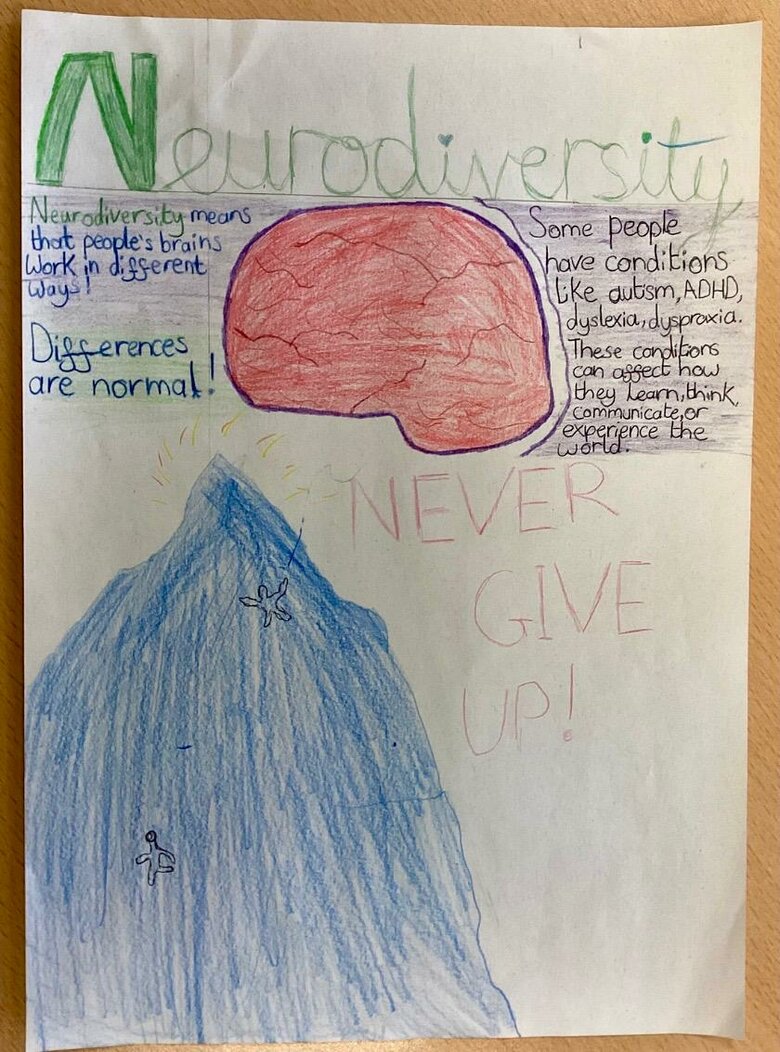 Neurodiversity
Neurodiversity means
that people's brains
work in different
ways!
Differences
are normal!
Some people
have conditions
like autism, ADHD,
dyslexia, dyspraxia.
These conditions
can affect how
they learn, think,
communicate, or
experience the
world.
NEVER
GIVE
UP!